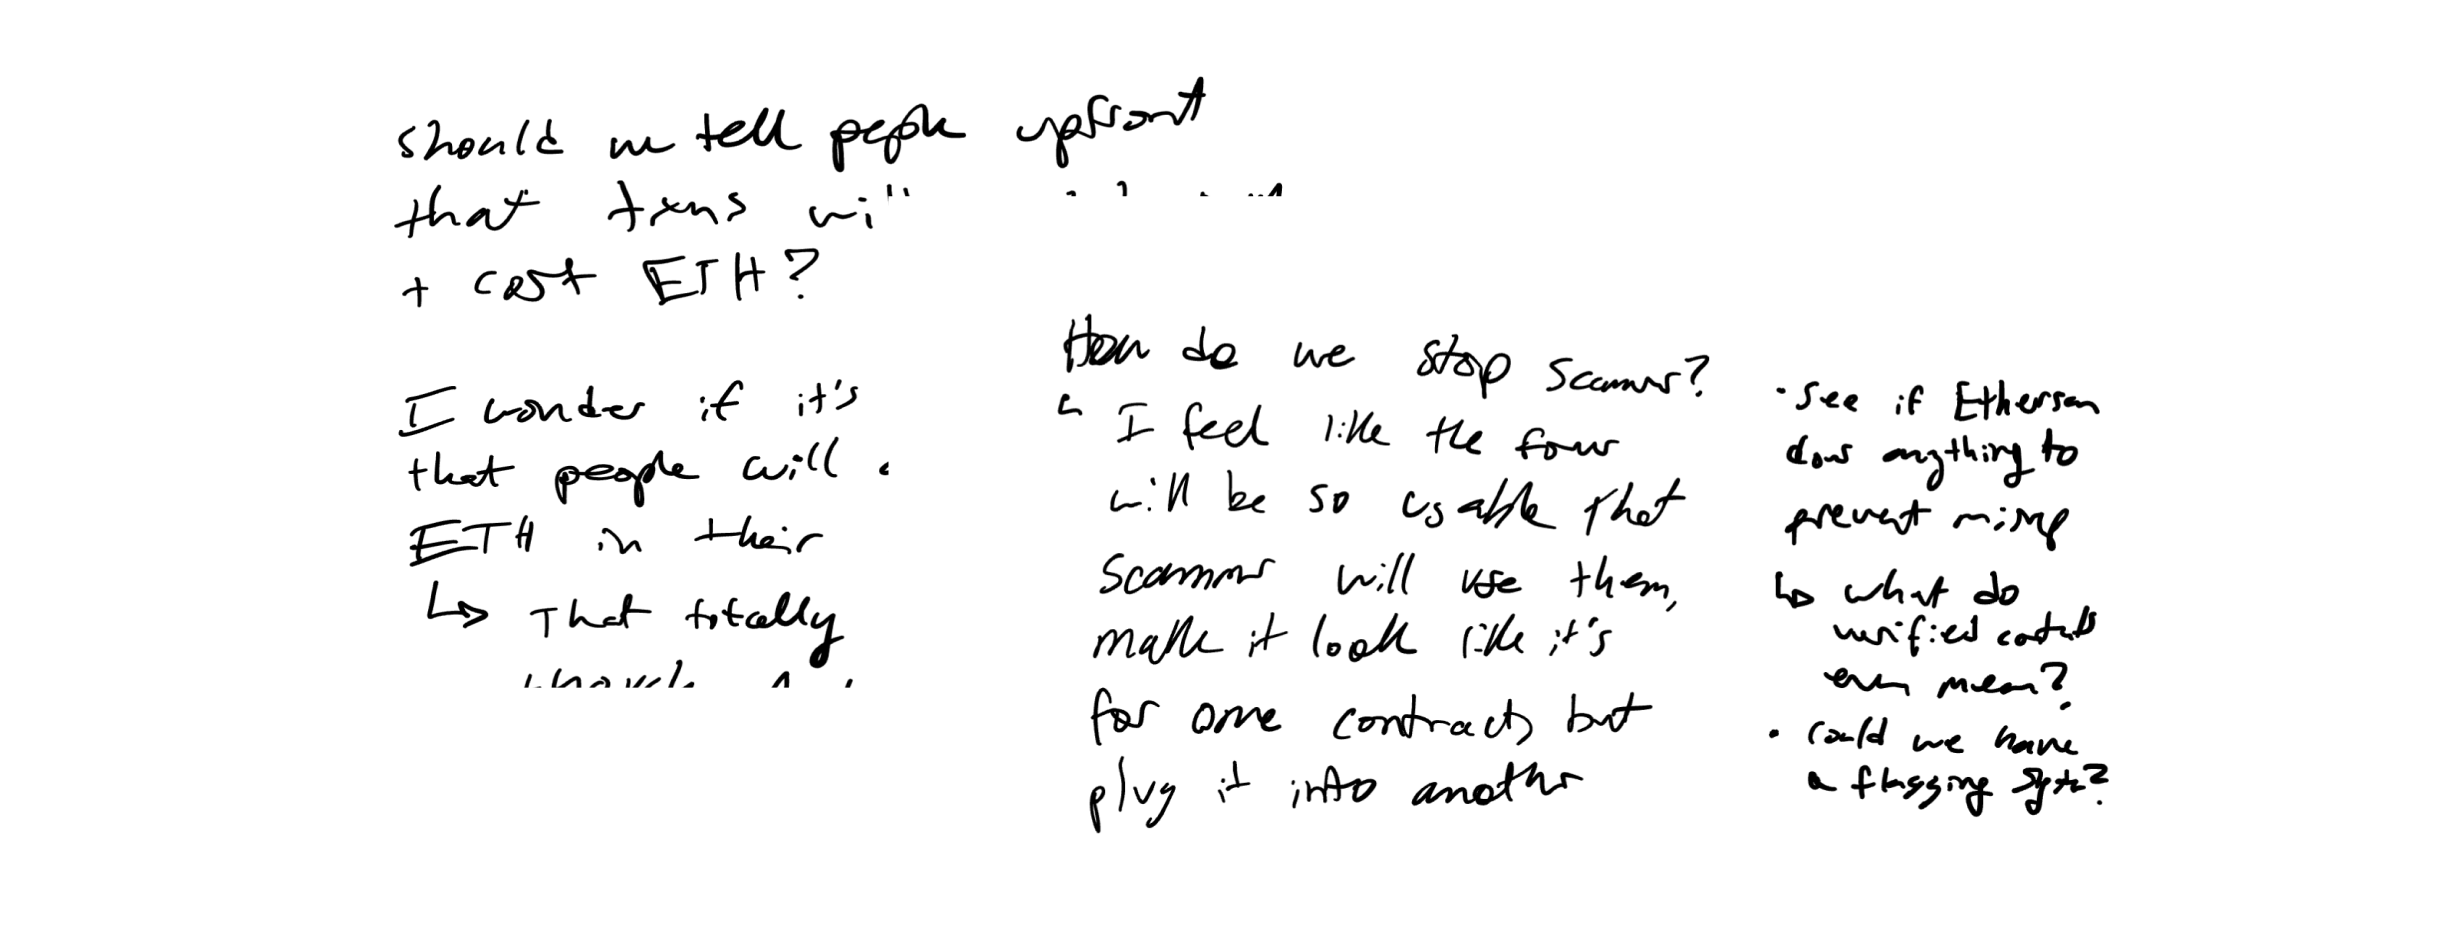 should we tell people upfront
that txns
+ cost ETH?
I wonder if it's
that people will
ETH in their
That totally
How do we stop scammers?
I feel like the forms
will be so usable that
scammers will use them,
make it look like it's
for one contract, but
plug it into another
• see if Etherscan
does anything to
prevent misuse
what do
verified contracts
even mean?
• could we have
a flagging system?